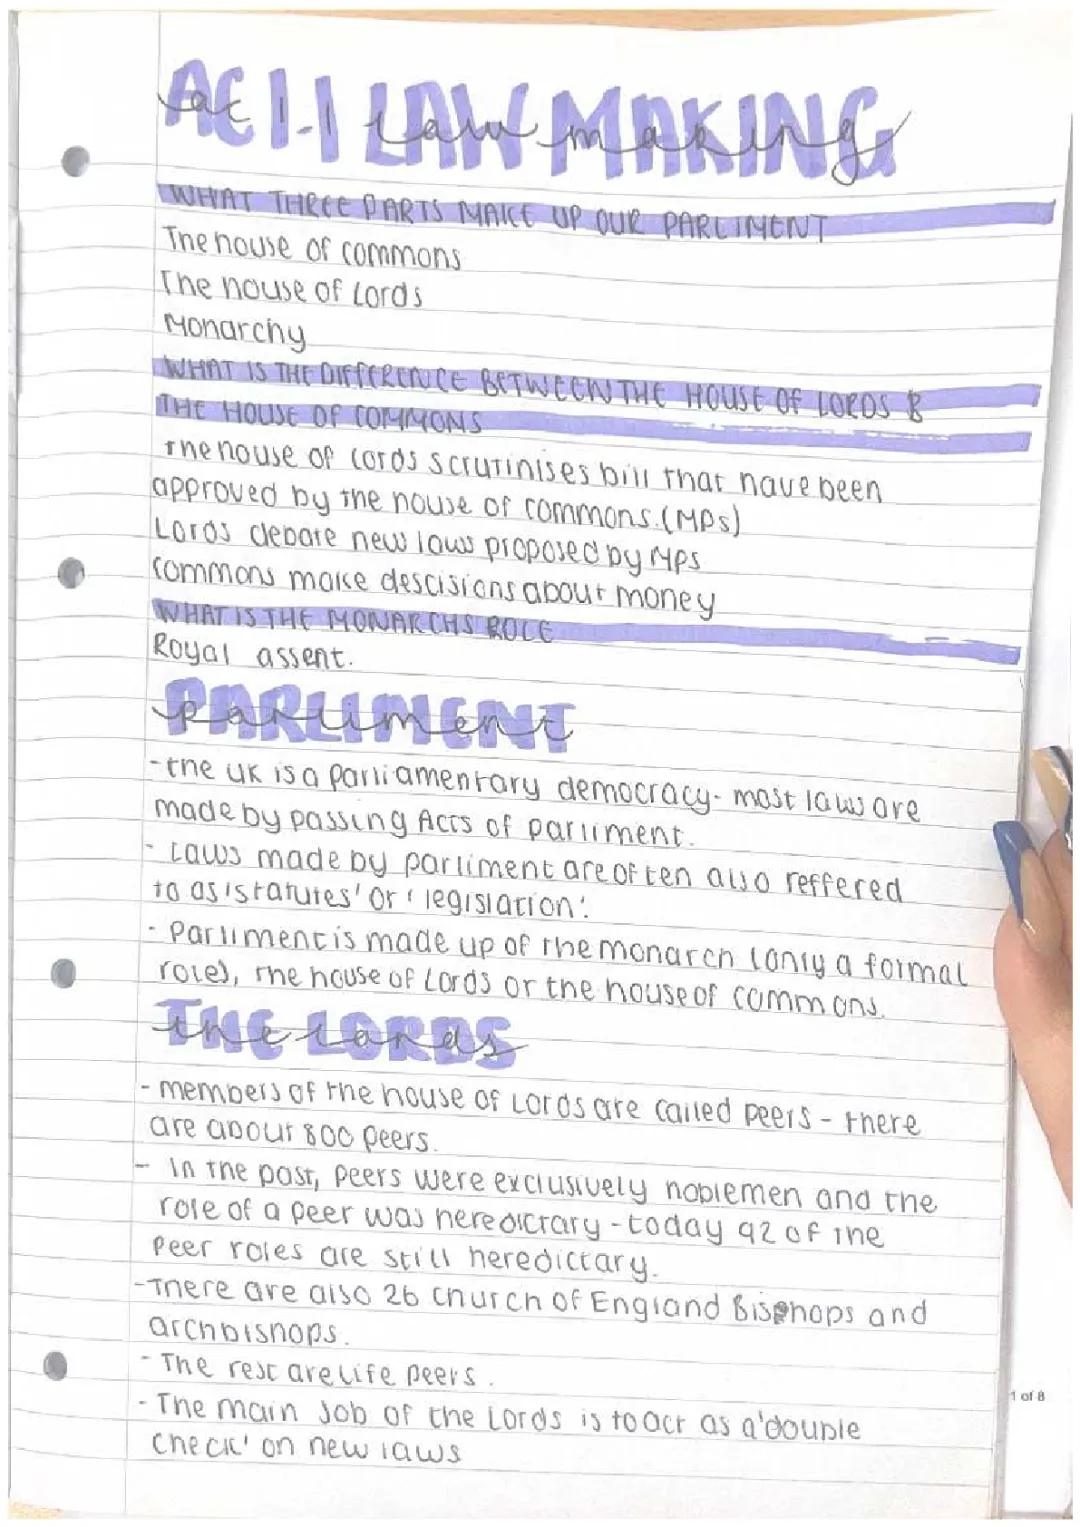 AC 1.1 LAW MAKING
ac 1.1 law making
WHAT THREE PARTS MAKE UP OUR PARLIMENT
The house of commons
The house of Lords
Monarchy
WHAT IS THE DIFFERENCE BETWEEN THE HOUSE OF LORDS &
THE HOUSE OF COMMONS
The house of Lords scrutinises bill that have been
approved by the house of commons.(MPs)
Lords debate new laws proposed by MPs
Commons make descisions about money
WHAT IS THE MONARCHS ROLE
Royal assent.
PARLIMENT
parliment
-the UK is a parliamentary democracy- most laws are
made by passing Acts of parliment.
- Laws made by parliment are often also reffered
to as 'statutes' or 'legislation'.
- Parliment is made up of the monarch (only a formal
role), the house of Lords or the house of commons.
THE LORDS
the lords
- members of the house of Lords are called peers - there
are about 800 peers.
- In the past, peers were exclusively noblemen and the
role of a peer was heredictary - today 92 of the
peer roles are still heredictary.
-There are also 26 church of England Bishops and
archbishops.
- The rest are life peers.
- The main job of the Lords is to act as a 'double
check' on new laws
1 of 8